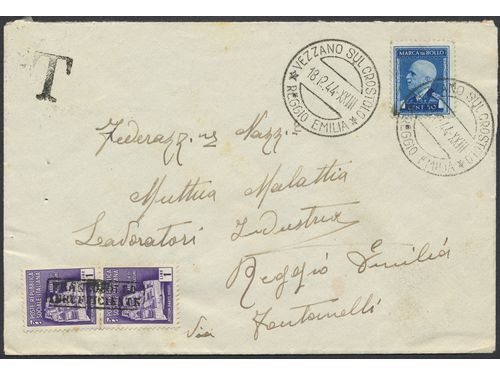 T
VEZZANO SUL CROSTOLO
18.12.44-XXIII
REGGIO EMILIA
MARCA DA BOLLO
CENT. 50
REGGIO EMILIA
44-XXIII
Federaz. Naz.
Muttua Malattia
Lavoratori Industria
Reggio Emilia
Via Fontanelli
POSTE REPUBBLICA SOCIALE ITALIANA
POSTE REPUBBLICA SOCIALE ITALIANA